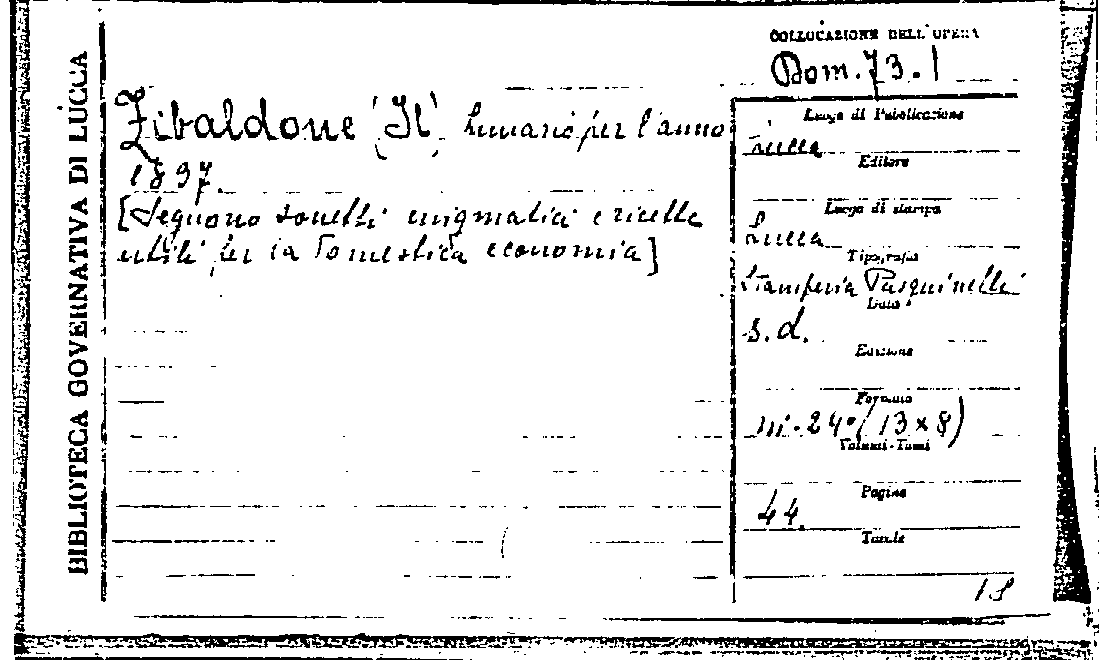 BIBLIOTECA GOVERNATIVA DI LUCCA
COLLOCAZIONE DELL'OPERA
Dom. 73.1
Zibaldone (Il) lunario per l'anno
1897.
[Seguono sonetti enigmatici e ricette
utili per la domestica economia]
Luogo di Pubblicazione
Lucca
Editore
Luogo di stampa
Lucca
Tipografia
Stamperia Pasquinelli
Data
s.d.
Edizione
Formato
in-24° (13 x 8)
Volumi-Tomi
Pagine
44.
Tavole